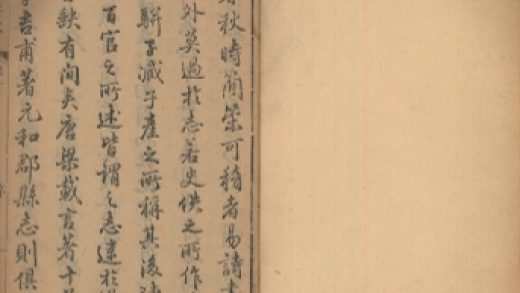 春秋時蘭策可稽者易詩書
外莫過於志若史佚之所作
駢子臧子産之所稱其後
百官之所述皆謂之志逮於
缺有間矣唐梁載言著十
吉甫著元和郡縣志則俱